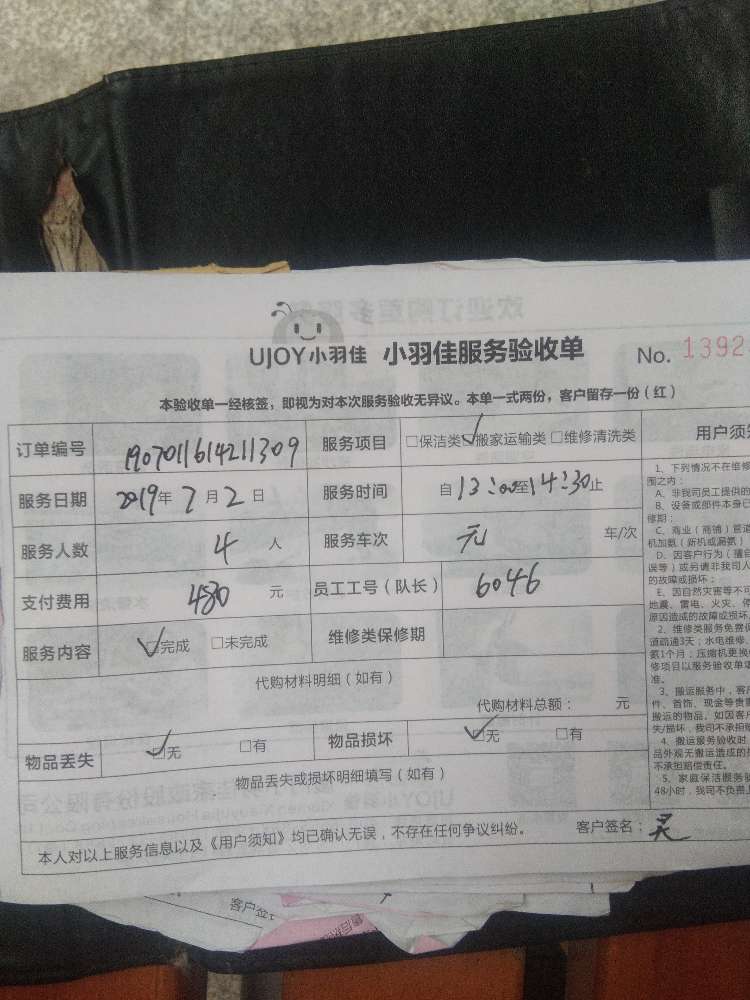 UJOY小羽佳 小羽佳服务验收单 No. 1392
本验收单一经核签，即视为对本次服务验收无异议。本单一式两份，客户留存一份（红）
订单编号 1907011614211309 服务项目 □保洁类 ☑搬家运输类 □维修清洗类
服务日期 2019年7月2日 服务时间 自13:00至14:30止
服务人数 4人 服务车次 元 车/次
支付费用 480元 员工工号（队长） 6046
服务内容 ☑完成 □未完成 维修类保修期
代购材料明细（如有）
代购材料总额： 元
物品丢失 ☑无 □有 物品损坏 ☑无 □有
物品丢失或损坏明细填写（如有）
本人对以上服务信息以及《用户须知》均已确认无误，不存在任何争议纠纷。 客户签名：
用户须
1、下列情况不在维修
围之内：
A、非我司员工提供的
B、设备或部件本身已
修期；
C、商业（商铺）管道
机加氨（新机或漏氨）
D、因客户行为（擅自
误等）或另请非我司人
的故障或损坏；
E、因自然灾害等不可
地震、雷电、火灾、停
原因造成的故障或损坏
2、维修类服务免费保
道疏通3天；水电维修、
氨1个月；压缩机更换
修项目以服务验收单
准。
3、搬运服务中，客
件、首饰、现金等贵
搬运的物品，如因客
失/损坏，我司不承担
4、搬运服务验收时
品外观无搬运造成的
不承担赔偿责任。
5、家庭保洁服务
48小时，我司不负责
客户签